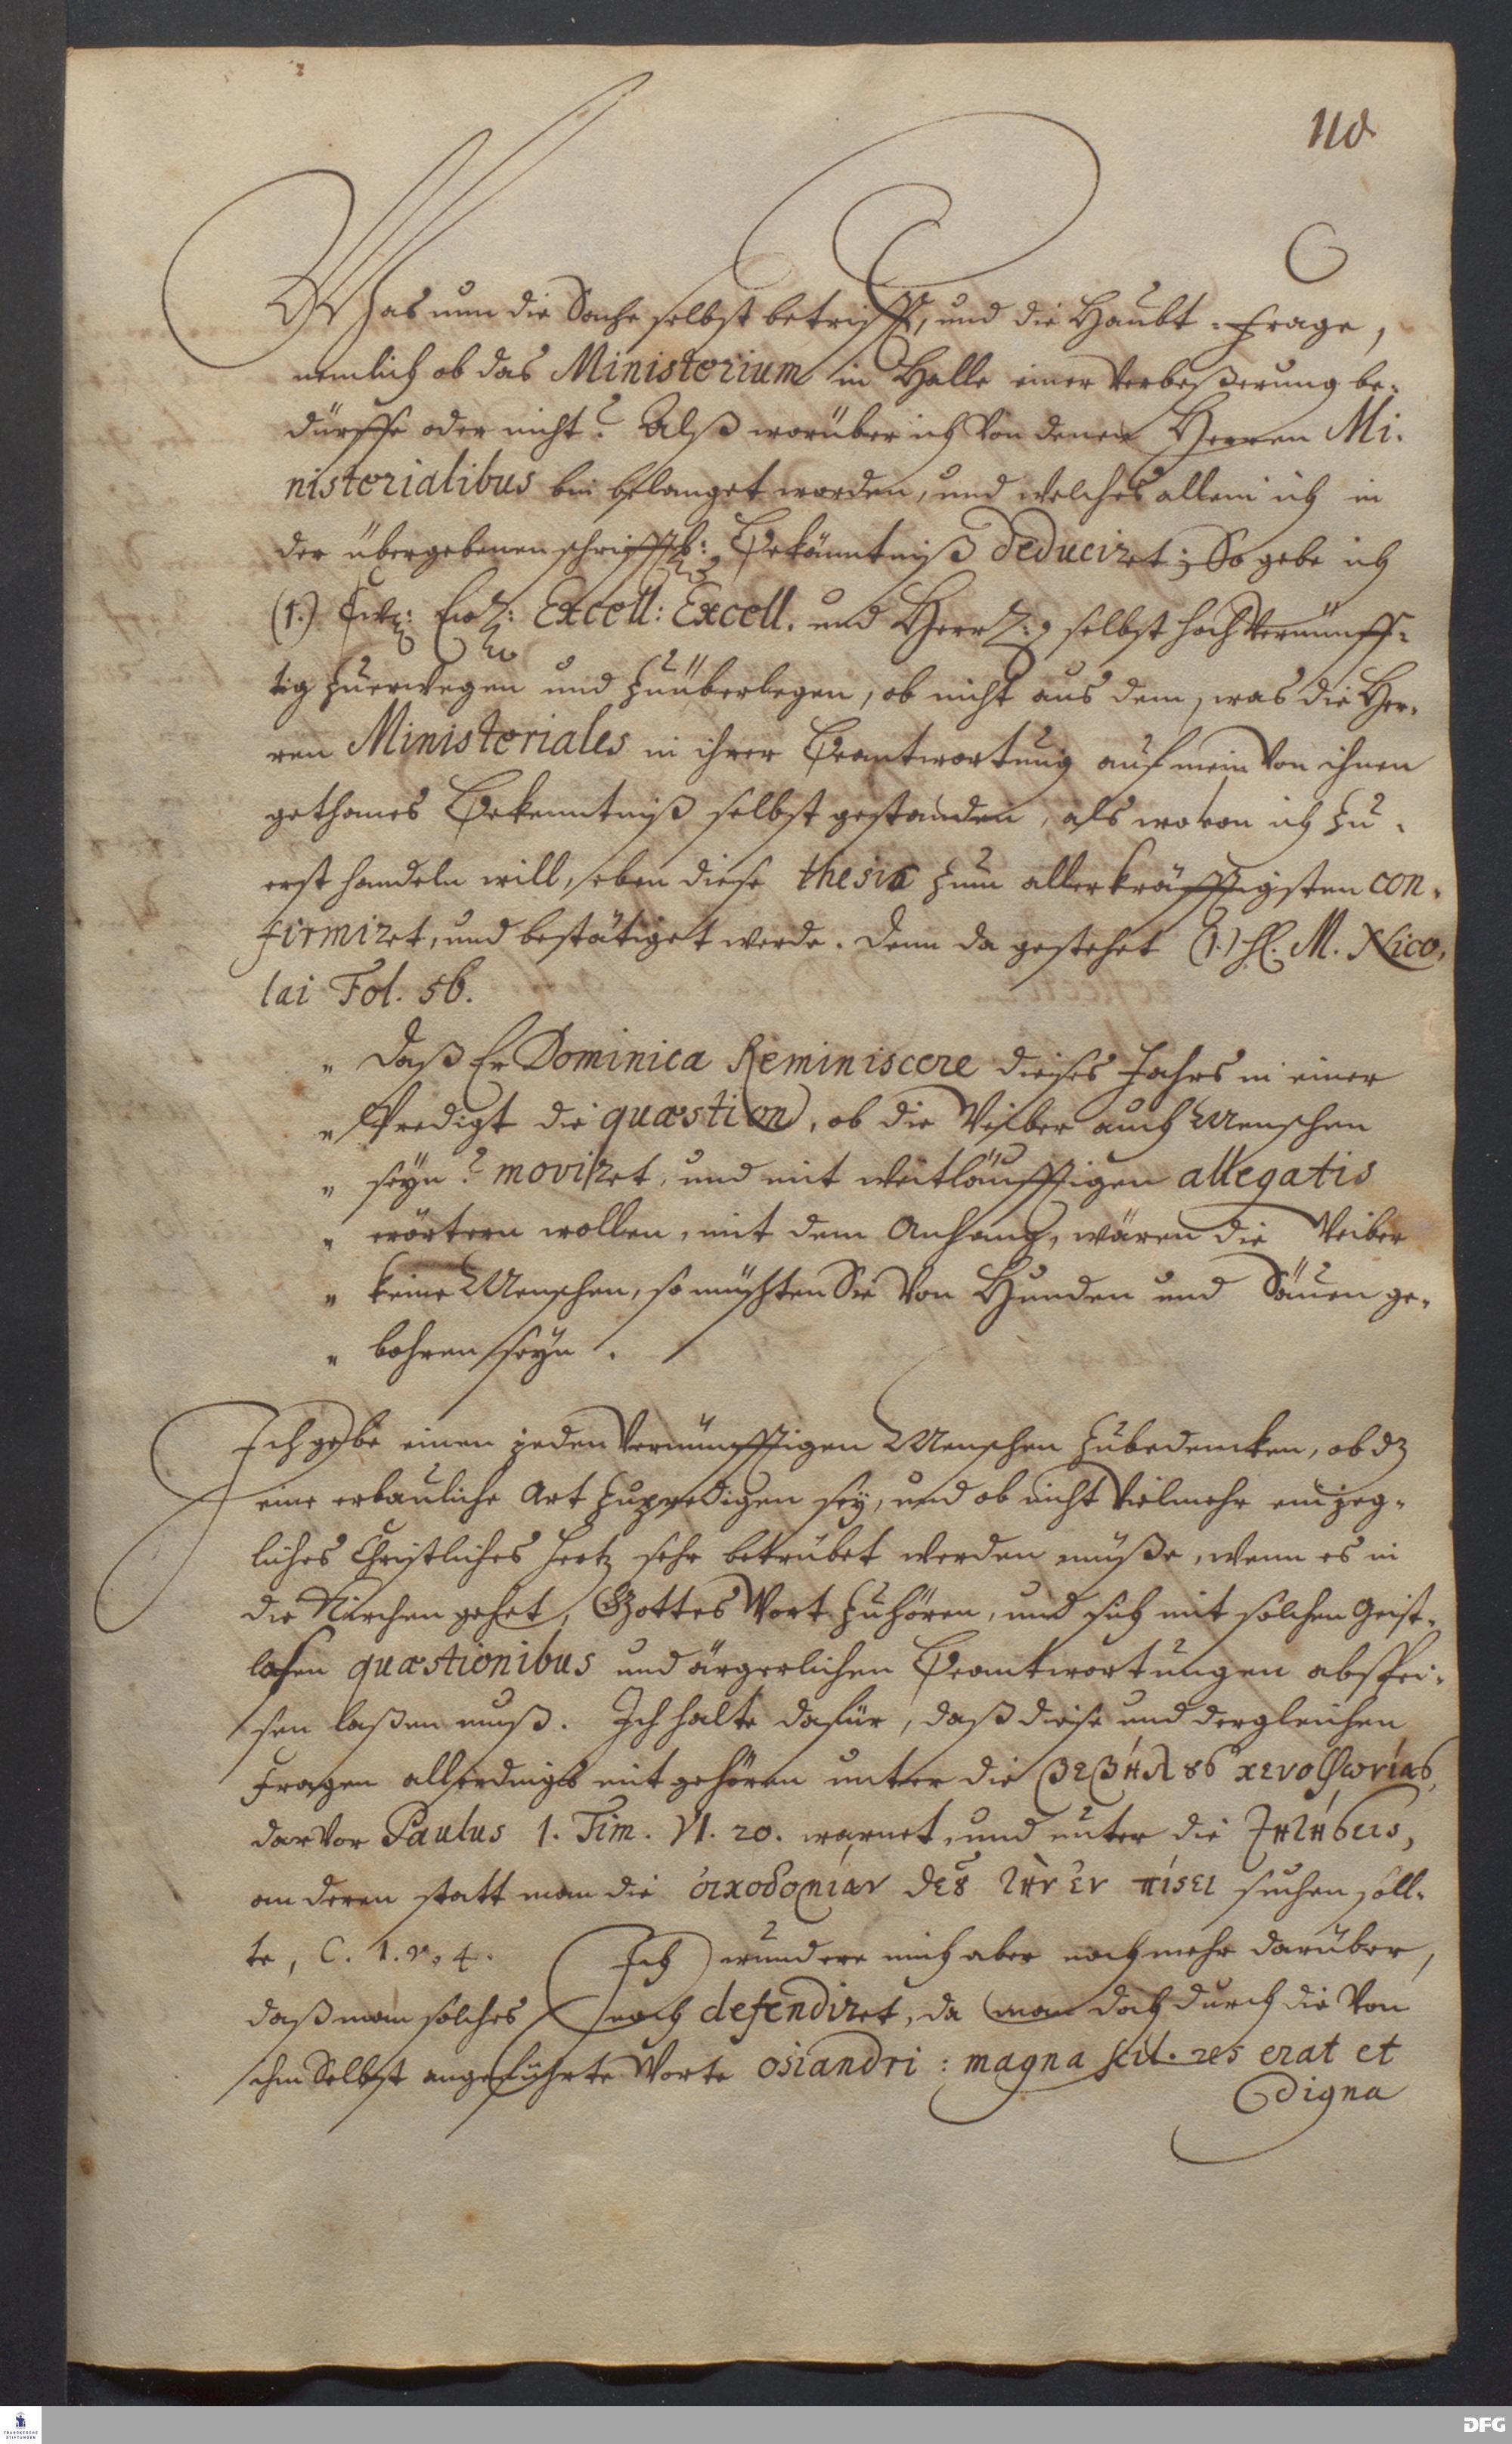 118
Was nun die Sache selbst betrifft, und die Haubt-Frage,
nemlich ob das Ministerium in Halle einer Verbeßerung be-
dürffe oder nicht? Alß worüber ich von denen Herren Mi-
nisterialibus bin belanget worden, und welches allein ich in
der übergebenen schrifftl: Bekänntniß deduciret; So gebe ich
(1.) Ew: Excell: Excell. und Herrl: selbst hochvernünff-
tig zuerwegen und zuüberlegen, ob nicht aus dem, was die Her-
ren Ministeriales in ihrer Beantwortung auf mein von ihnen
gethanes Bekenntniß selbst gestanden, als wovon ich zu-
erst handeln will, eben diese thesis zum allerkräfftigsten con-
firmiret, und bestätiget werde. Denn da gestehet (1.) H. M. Nico-
lai Fol. 56.
" Daß Er Dominica Reminiscere dieses Jahrs in einer
" Predigt die quæstion, ob die Weiber auch Menschen
" seyn? moviret, und mit weitläufftigen allegatis
" erörtern wollen, mit dem Anhang, wären die Weiber
" keine Menschen, so müsten Sie von Hunden und Säuen ge-
" bohren seyn.
Ich gebe einen jeden vernünfftigen Menschen zubedencken, ob dz
eine erbauliche Art zupredigen sey, und ob nicht vielmehr ein jeg-
liches Christliches Hertz sehr betrübet werden müße, wenn es in
die Kirchen gehet, Gottes Wort zuhören, und sich mit solchen Geist-
losen quæstionibus und ärgerlichen Beantwortungen abspei-
sen laßen muß. Ich halte dafür, daß diese und dergleichen
Fragen allerdings mit gehören unter die βεβήλȣς κενοφωνίας,
darvor Paulus 1. Tim. VI. 20. warnet, und unter die ζητήσεις,
an deren statt man die οἰκοδομίαν θεȣ τὴν ἐν πίϛει suchen soll-
te, C. 1. v. 4. Ich wundere mich aber noch mehr darüber,
daß man solches noch defendiret, da man doch durch die von
ihm Selbst angeführte Worte Osiandri: magna scil. res erat et
digna
FRANCKESCHE
STIFTUNGEN
DFG